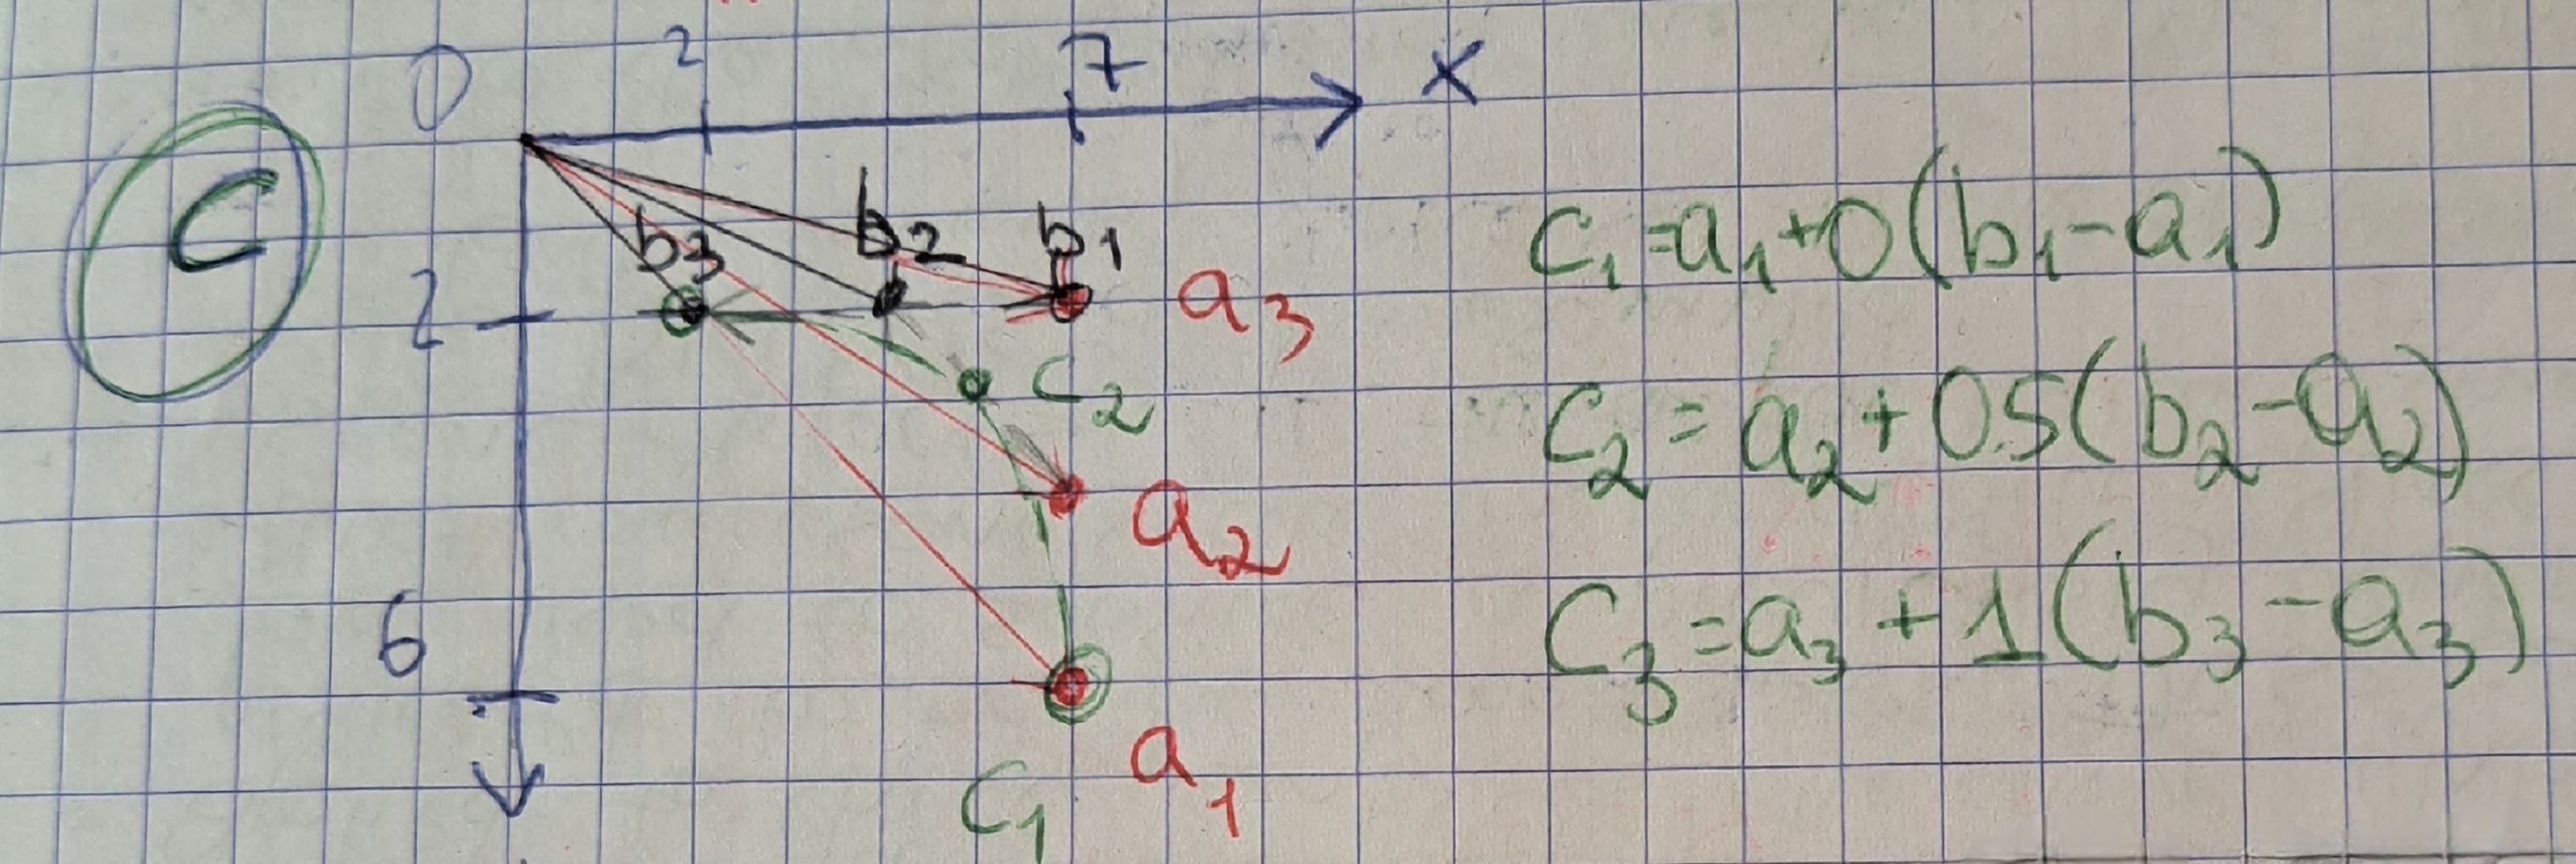 0 2 7 X
C
b3 b2 b1
2 a3
c2
a2
6
a1
c1
c1=a1+0(b1-a1)
c2=a2+0.5(b2-a2)
c3=a3+1(b3-a3)